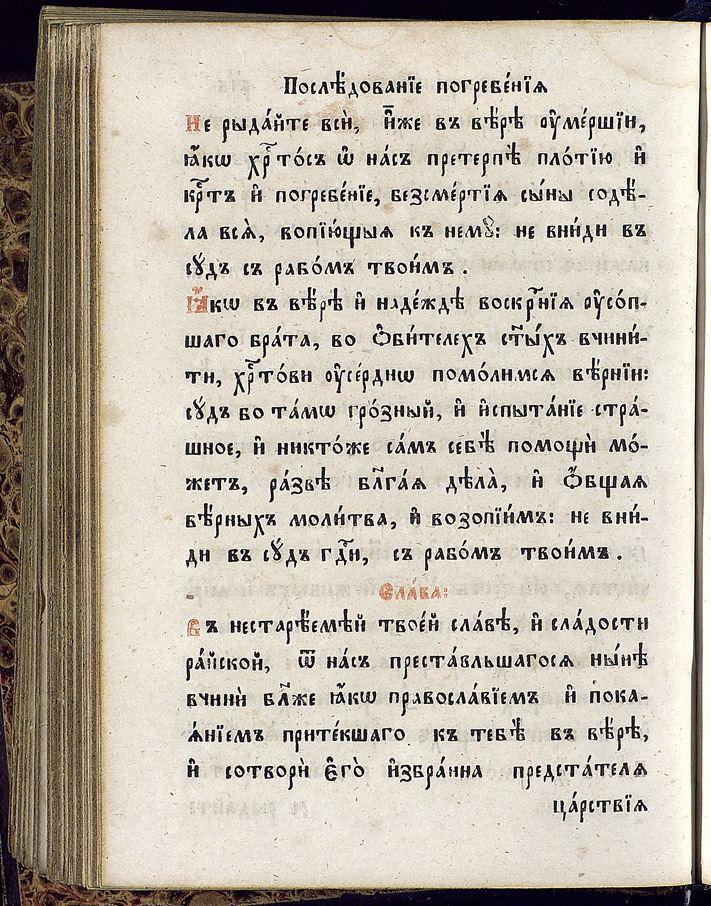 Послѣ́дованїе погребе́нїѧ
Не рыда́йте всѝ, и҆̀же въ вѣ́рѣ ᲂу҆ме́ршїи,
ꙗ҆́кѡ хрⷭ҇то́съ ѡ҆ на́съ претерпѣ̀ пло́тїю и҆
крⷭ҇тъ и҆ погребе́нїе, безсме́ртїѧ сы́ны содѣ́-
ла всѧ̀, вопїю́щыѧ къ немꙋ̀: не вни́ди въ
сꙋ́дъ съ рабо́мъ твои́мъ.
Ꙗ҆́кѡ въ вѣ́рѣ и҆ наде́ждѣ воскрⷭ҇нїѧ ᲂу҆со́п-
шаго бра́та, во ѻ҆би́телехъ ст҃ы́хъ вчини́-
ти, хрⷭ҇то́ви ᲂу҆се́рднѡ помо́лимсѧ вѣ́рнїи:
сꙋ́дъ бо та́мѡ гро́зный, и҆ и҆спыта́нїе стра́-
шное, и҆ никто́же са́мъ себѣ̀ помощѝ мо́-
жетъ, ра́звѣ бл҃га́ѧ дѣла̀, и҆ ѻ҆́бщаѧ
вѣ́рныхъ моли́тва, и҆ возопїи́мъ: не вни́-
ди въ сꙋ́дъ гдⷭ҇и, съ рабо́мъ твои́мъ.
Сла́ва:
Въ нестарѣ́емѣй твое́й сла́вѣ, и҆ сла́дости
ра́йской, ѿ на́съ преста́вльшагосѧ ны́нѣ
вчинѝ бл҃же ꙗ҆́кѡ правосла́вїемъ и҆ пока-
ѧ́нїемъ прите́кшаго къ тебѣ̀ въ вѣ́рѣ,
и҆ сотворѝ є҆го̀ и҆збра́нна предста́телѧ
ца́рствїѧ